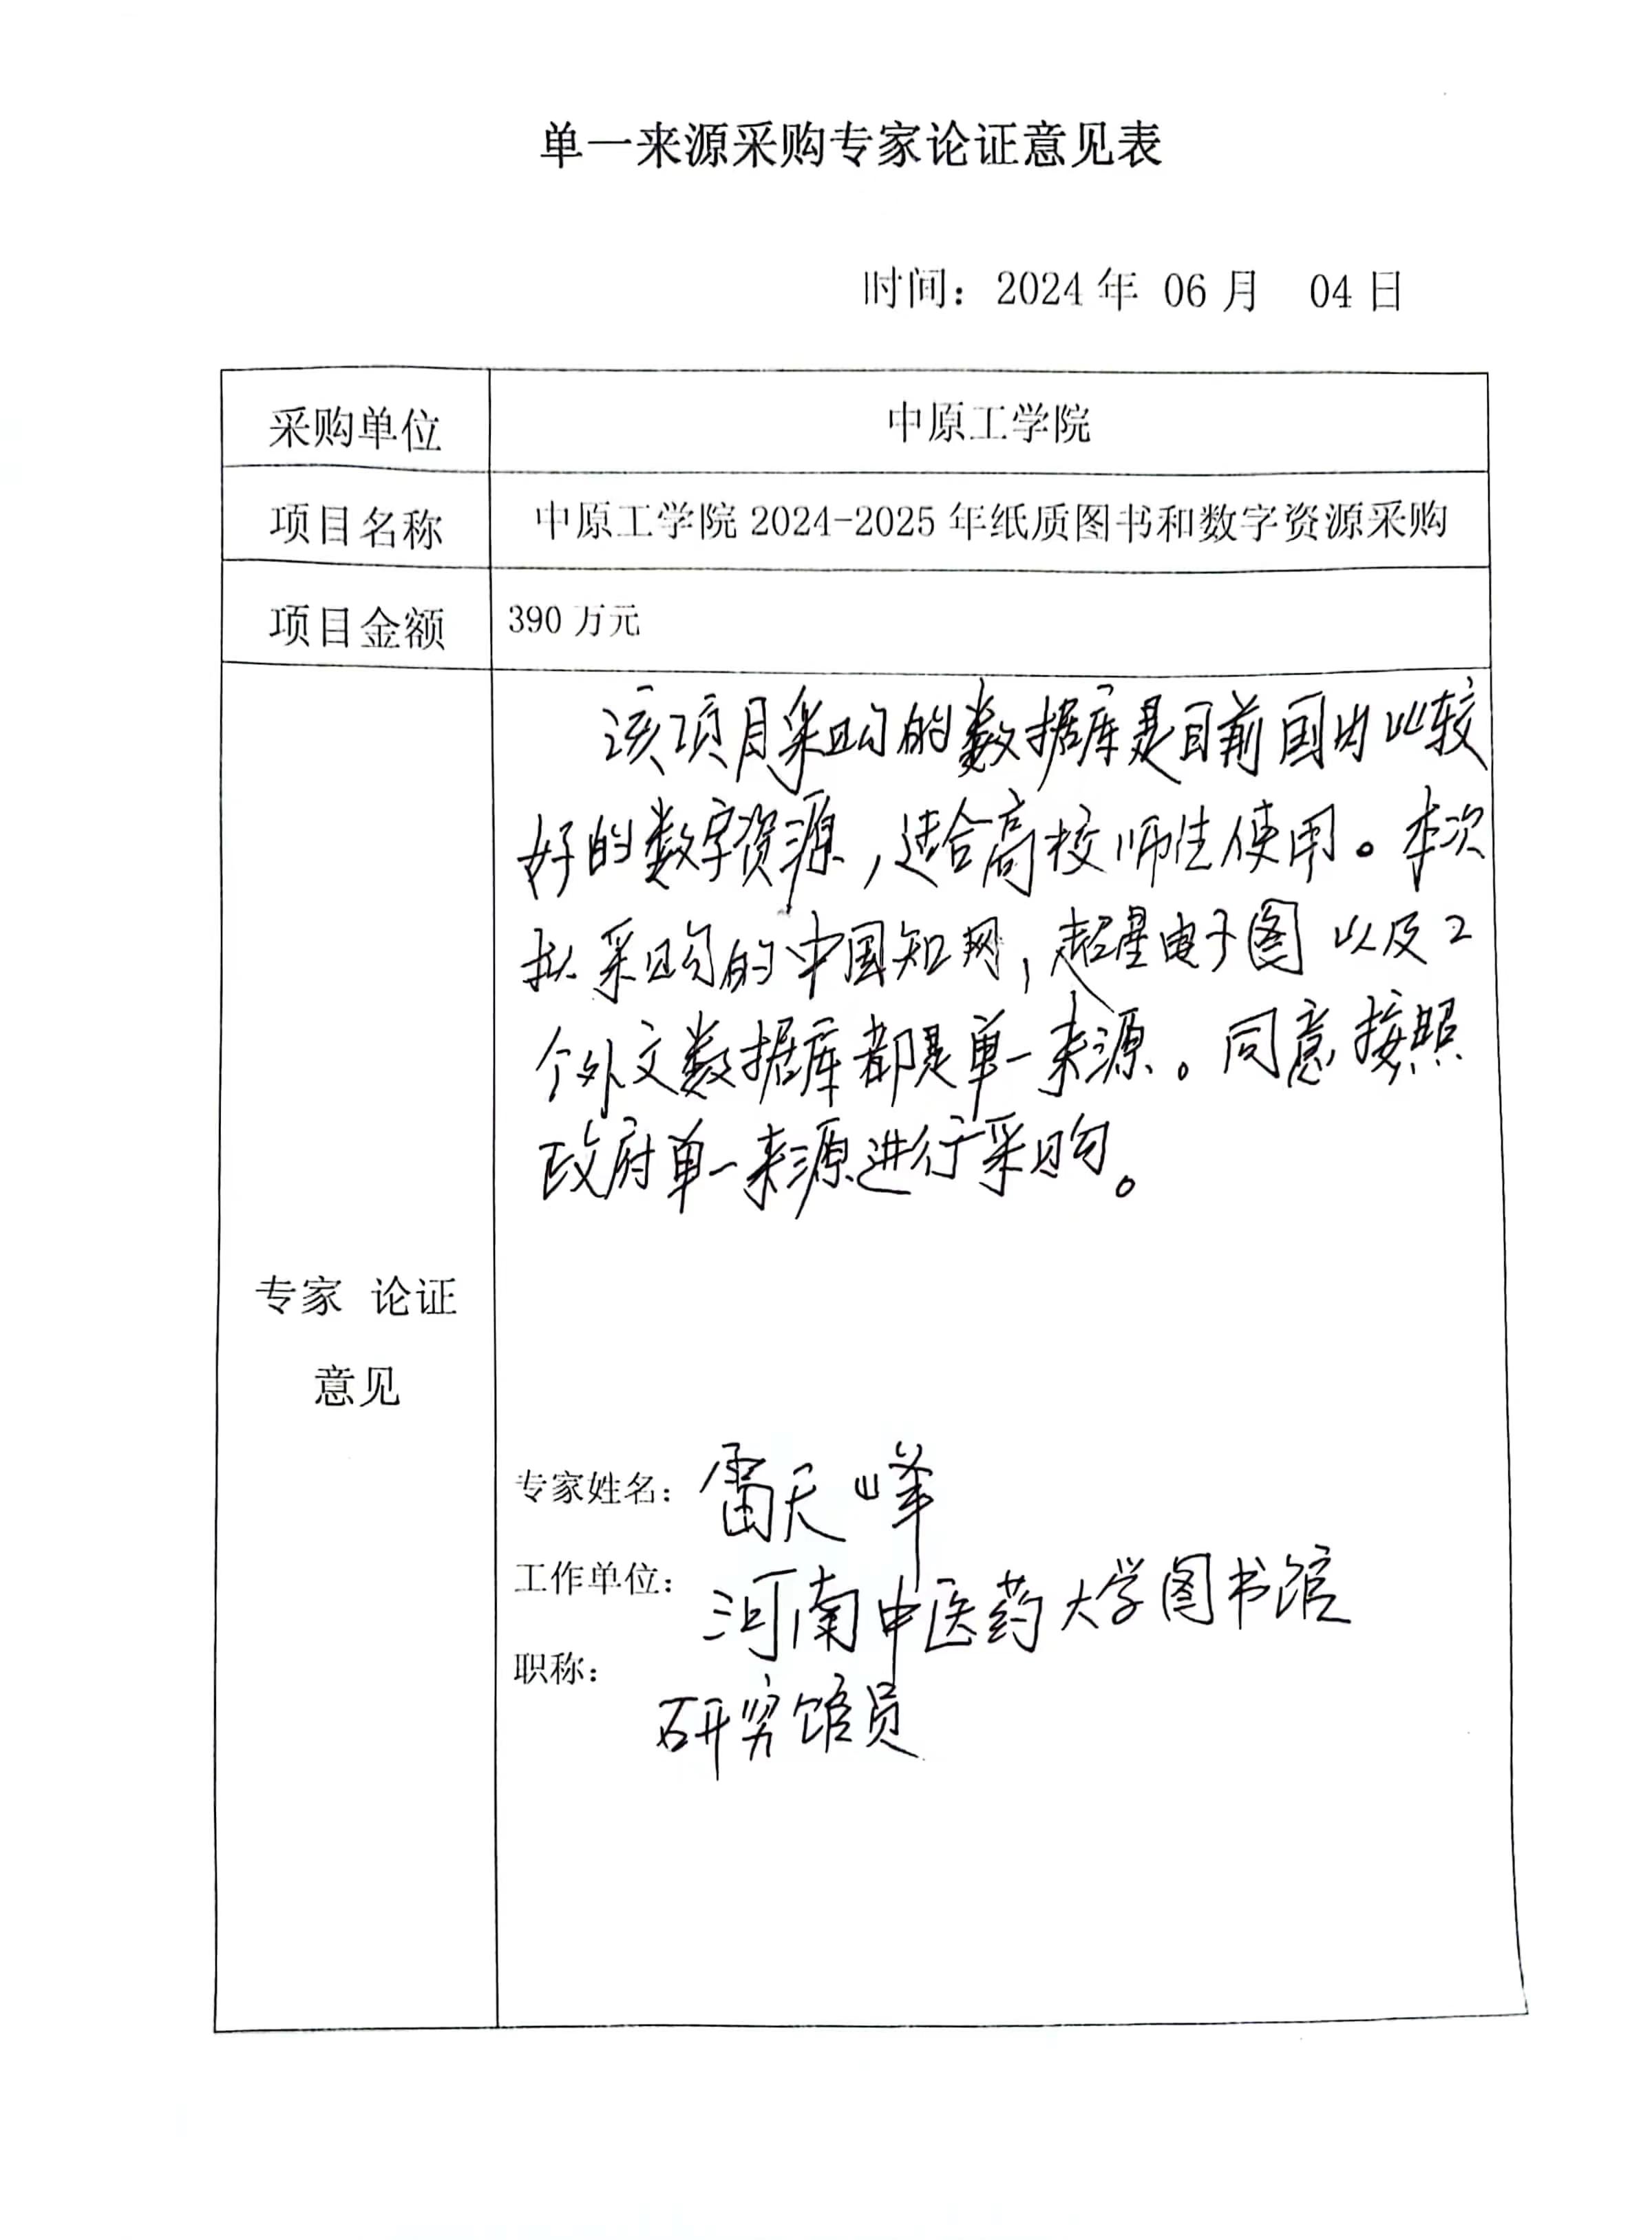 单一来源采购专家论证意见表
时间：2024 年 06 月 04 日
采购单位 中原工学院
项目名称 中原工学院 2024-2025 年纸质图书和数字资源采购
项目金额 390 万元
该项目采购的数据库是目前国内比较
好的数字资源，适合高校师生使用。本次
拟采购的中国知网，超星电子图以及2
个外文数据库都是单一来源。同意按照
政府单一来源进行采购。
专家 论证
意见
专家姓名：雷天峰
工作单位：河南中医药大学图书馆
职称：研究馆员